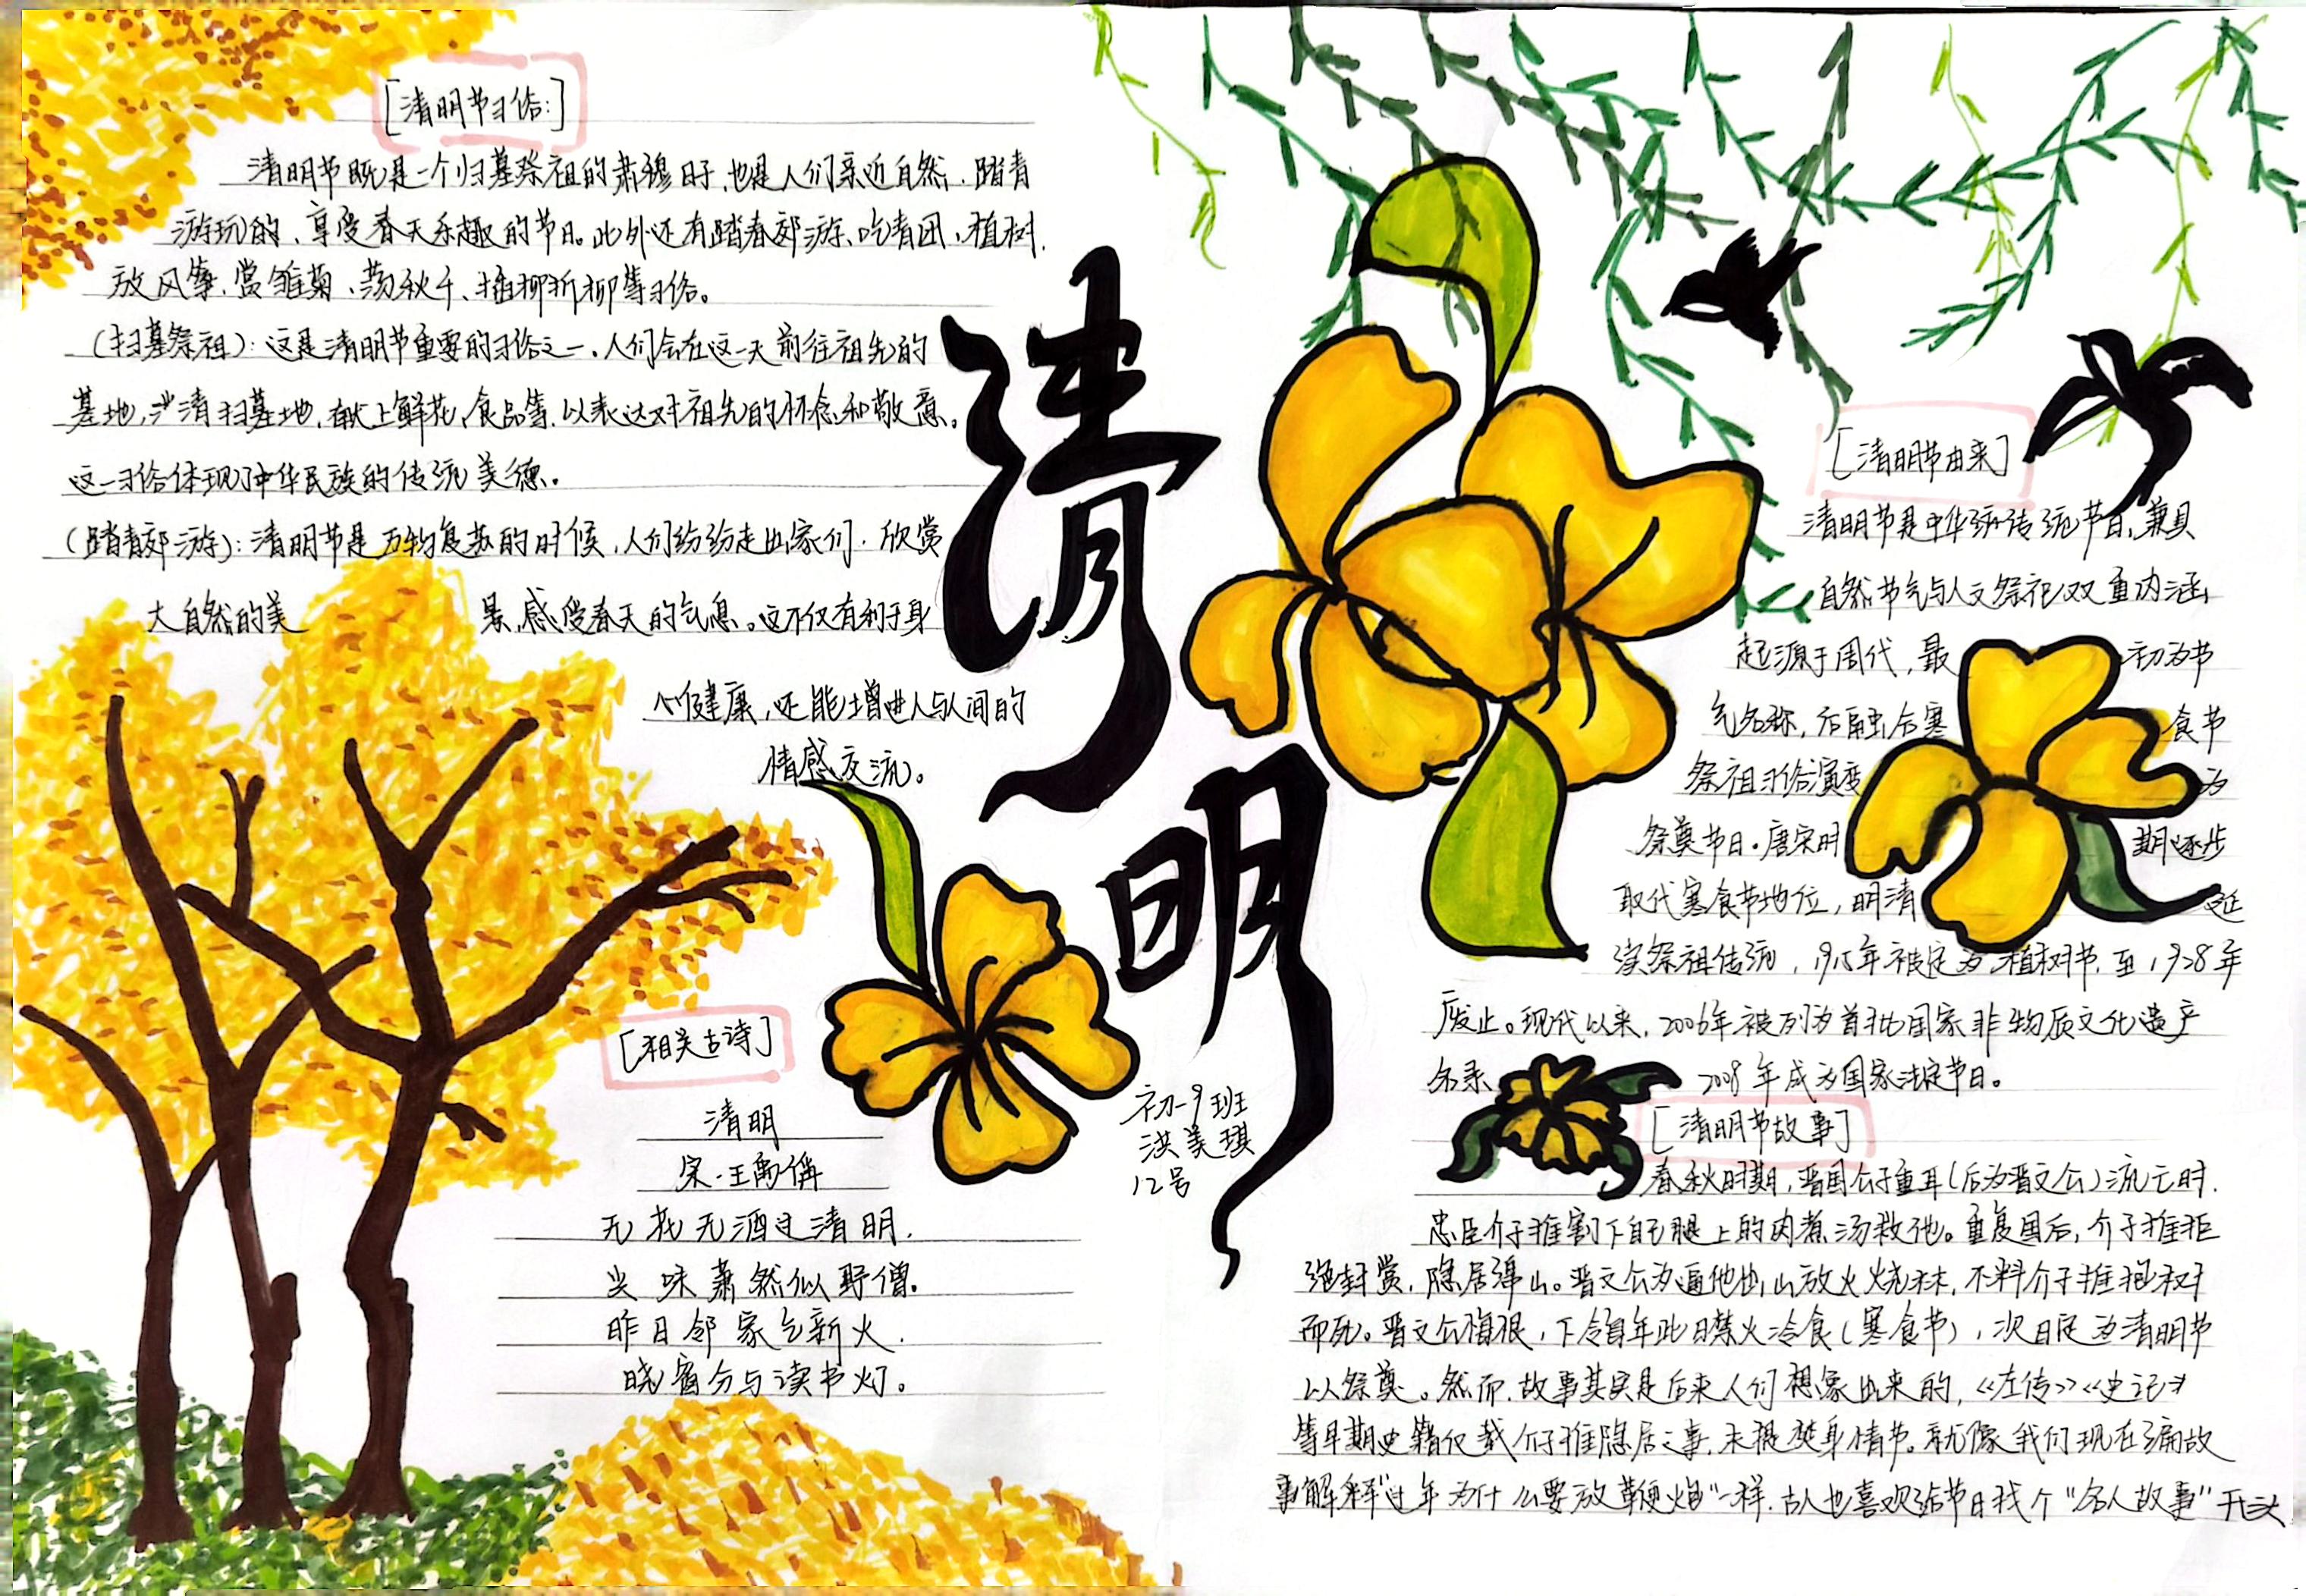 [清明节习俗:]
清明节既是一个扫墓祭祖的肃穆日子,也是人们亲近自然、踏青
游玩的、享受春天乐趣的节日。此外还有踏春郊游、吃青团、植树、
放风筝、赏雏菊、荡秋千、插柳折柳等习俗。
(扫墓祭祖):这是清明节重要的习俗之一。人们会在这一天前往祖先的
墓地,清扫墓地,献上鲜花、食品等,以表达对祖先的怀念和敬意。
这一习俗体现了中华民族的传统美德。
(踏青郊游):清明节是万物复苏的时候,人们纷纷走出家们,欣赏
大自然的美 景,感受春天的气息。这不仅有利于身
心健康,还能增进人与人间的
情感交流。
清明
[相关古诗]
清明
宋·王禹偁
无花无酒过清明,
兴味萧然似野僧。
昨日邻家乞新火,
晓窗分与读书灯。
初一9班
洪美琪
12号
[清明节由来]
清明节是中华传统节日,兼具
自然节气与人文祭祀双重内涵,
起源于周代,最 初为节
气名称,后融合寒 食节
祭祖习俗演变 为
祭奠节日。唐宋时 期逐步
取代寒食节地位,明清 延
续祭祖传统,1915年被定为植树节,至1928年
废止。现代以来,2006年被列为首批国家非物质文化遗产
名录 2008年成为国家法定节日。
[清明节故事]
春秋时期,晋国公子重耳(后为晋文公)流亡时,
忠臣介子推割下自己腿上的肉煮汤救他。重复国后,介子推拒
绝封赏,隐居绵山。晋文公为逼他出山放火烧林,不料介子推抱树
而死。晋文公悔恨,下令每年此日禁火冷食(寒食节),次日定为清明节
以祭奠。然而,故事其实是后来人们想象出来的,《左传》《史记》
等早期史籍仅载介子推隐居之事,未提焚身情节。就像我们现在编故
事解释“过年为什么要放鞭炮”一样,古人也喜欢给节日找个“名人故事”开头